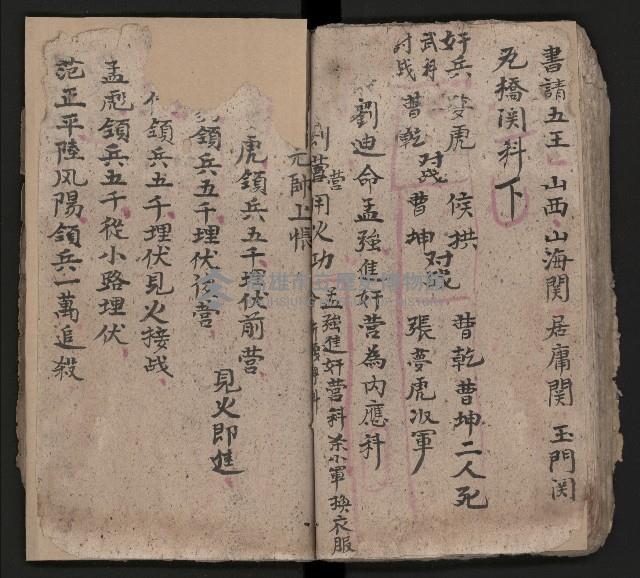 書請五王 山西 山海関 居庸関 玉門関
瓦橋関科下
奸兵 婁虎 侯拱 曹乾曹坤二人死
武科 曹乾 对战 曹坤 对战 張夢虎収軍
对战
劉迪命孟強進奸营為内應科
用火功 孟強進奸营科杀小軍換衣服
元帥上帳
虎領兵五千埋伏前营 見火即進
領兵五千埋伏後营
領兵五千埋伏見火接战
孟彪領兵五千從小路埋伏
范正平陸风陽領兵一萬追殺
高雄市立歷史博物館